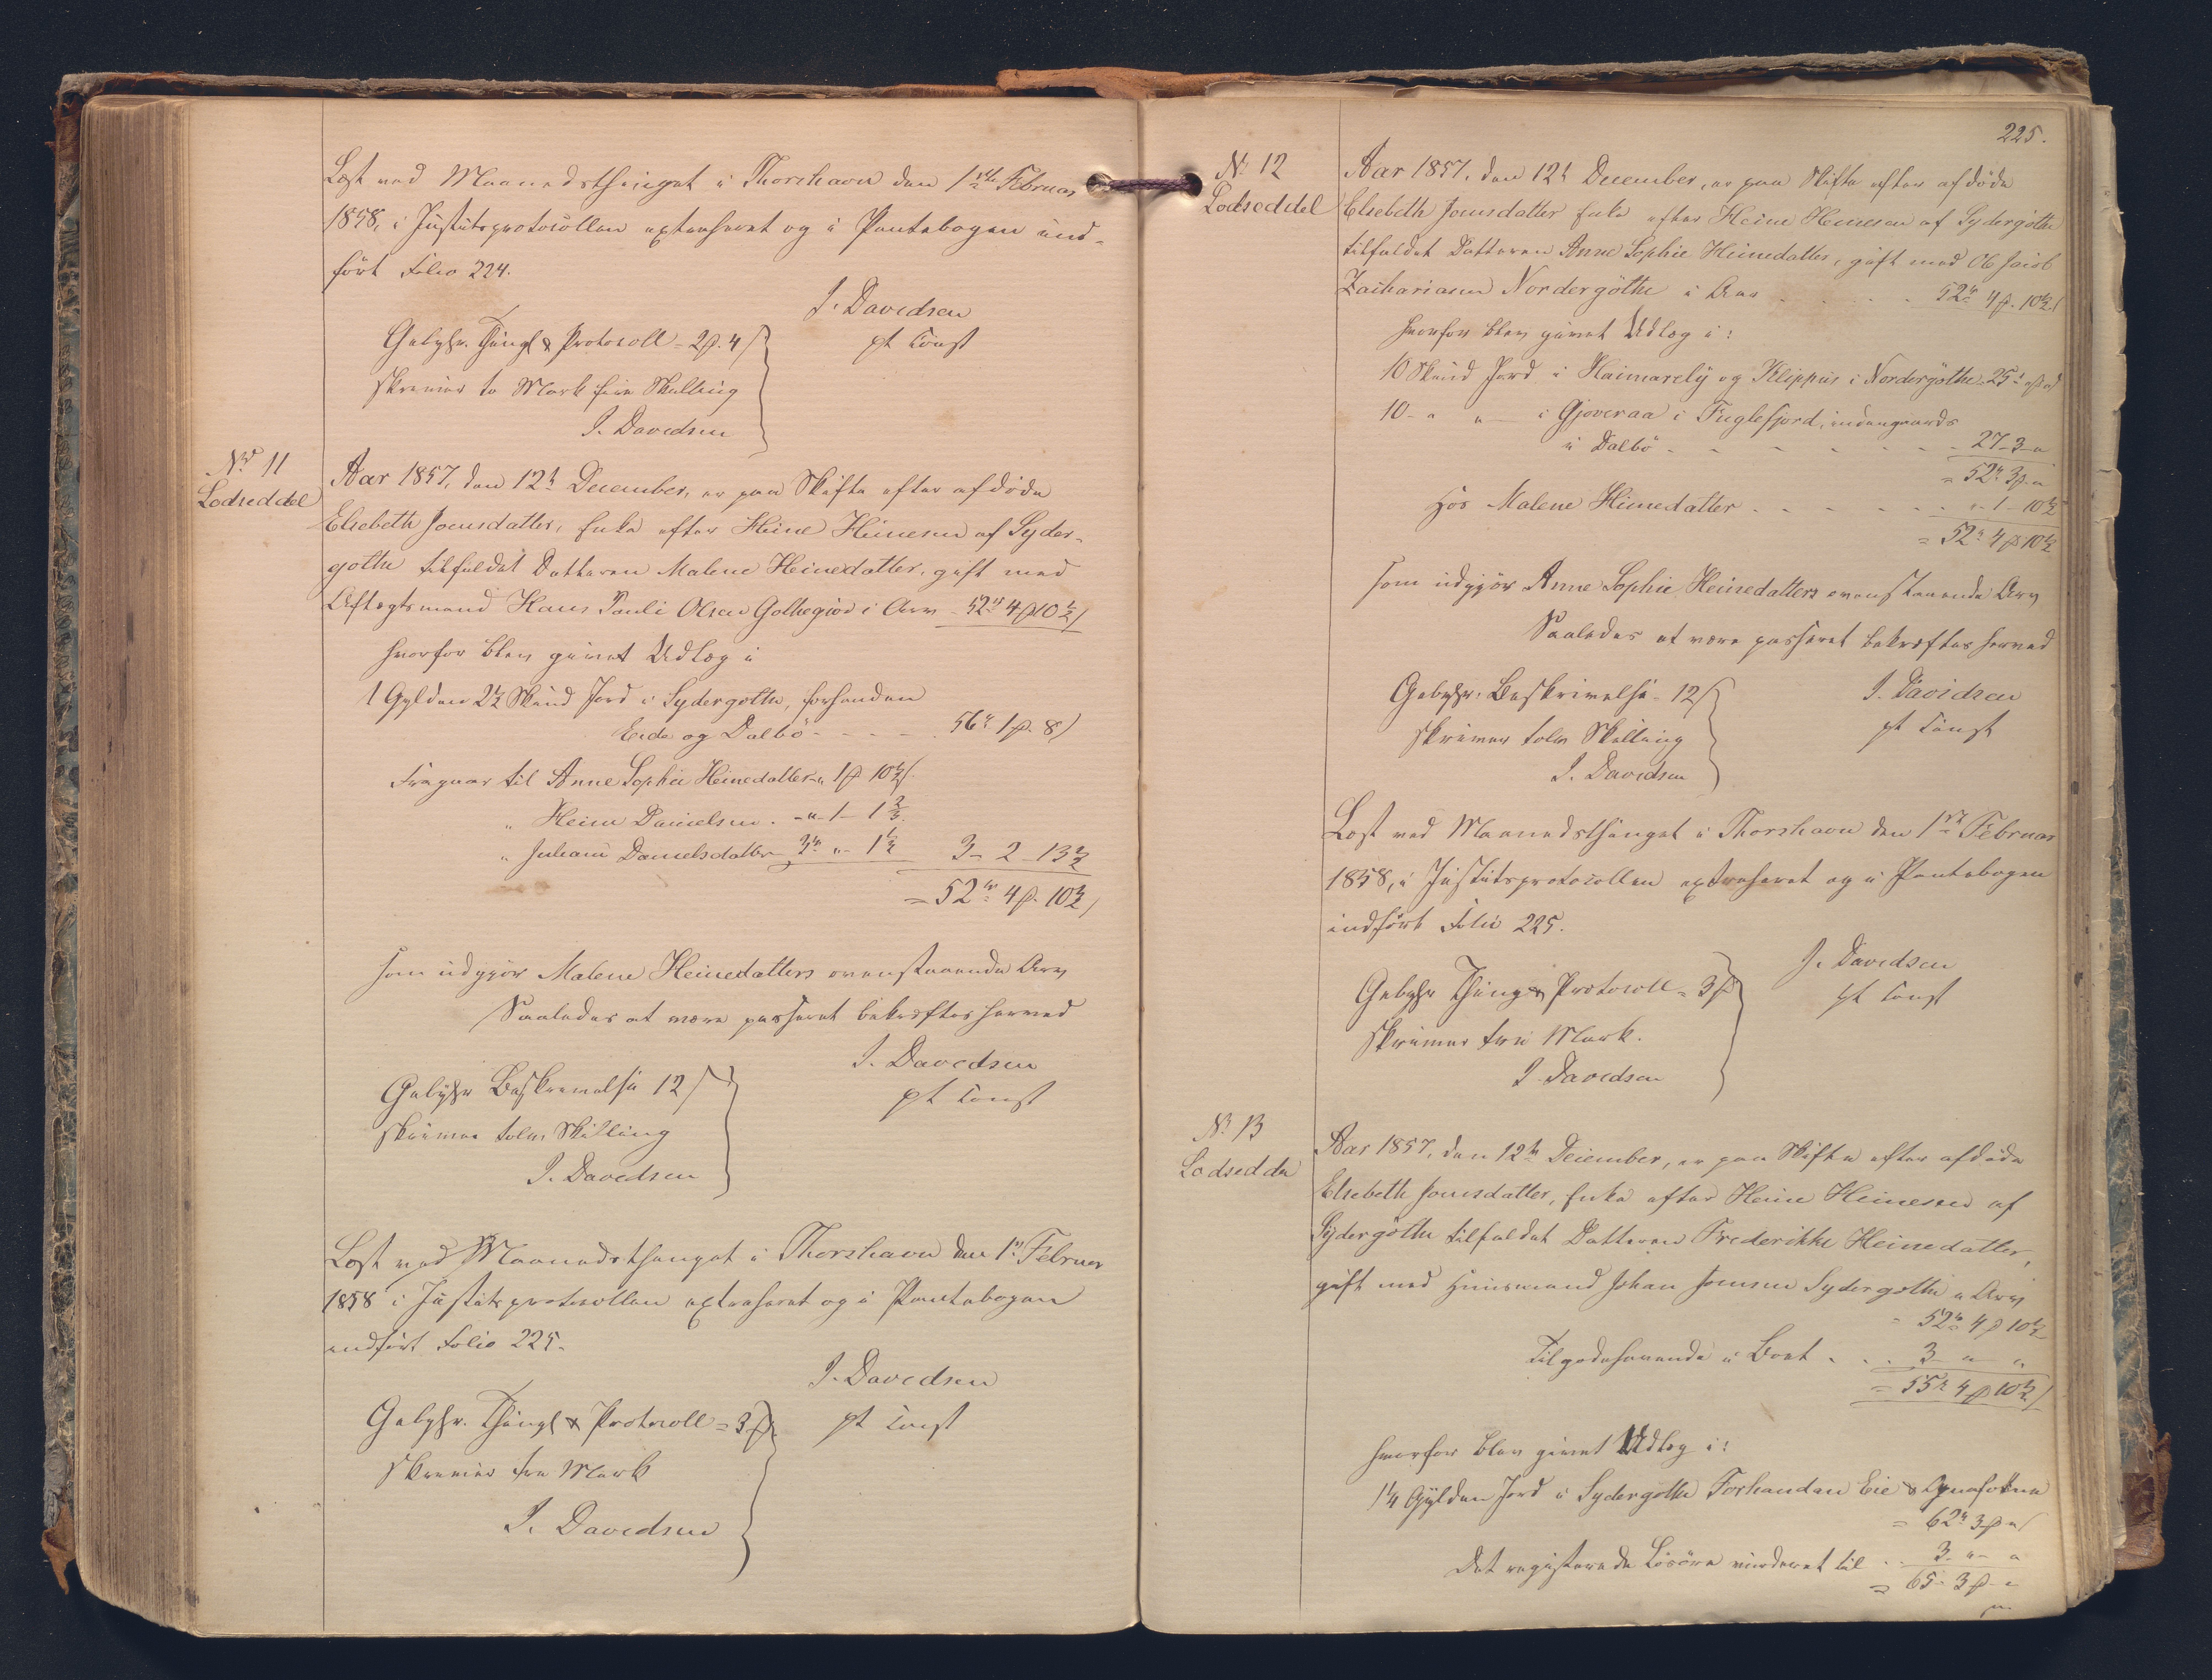 Læst ved Maanedsthinget i Thorshavn den 1ste Februar
1858, i Justitsprotocollen extraheret og i Pantebogen ind-
ført Folio 224.
J. Davidsen
pt Const
Gebyhr. Thingl & Protocoll = 2 ß. 4 /
skriver to Mark fire Skilling
J. Davidsen
No 11
Lodseddel
Aar 1857, den 12t December, er paa Skifte efter afdøde
Elsebeth Joensdatter, Enke efter Heine Heinesen af Syder-
gøthe tilfaldet Datteren Malene Heinedatter, gift med
Aftægtsmand Hans Pauli Olsen Gothegiov i Arv - 52 rd 4 ß 10½ /
hvorfor blev givet Udlæg i
1 Gylden 2½ Skind Jord i Sydergøthe, forhenden
Eide og Dalbø - - - - 56 rd 1 ß. 8 /
Fragaar til Anne Sophie Heinedatter " 1 ß 10½ /.
" Heine Danielsen. - " - 1 - 1 ⅔.
" Juliane Danielsdatter 3 rd " - 1½ 3 - 2 - 13⅔
= 52 rd 4 ß. 10½ /
som udgjør Malene Heinedatters ovenstaaende Arv
Saaledes at være passeret bekræftes herved
J. Davidsen
pt Const
Gebyhr Beskrivelse 12 /
skriver tolv Skilling
J. Davidsen
Læst ved Maanedsthinget i Thorshavn den 1ste Februar
1858 i Justitsprotocollen extraheret og i Pantebogen
indført Folio 225.
J. Davidsen
pt Const
Gebyhr. Thingl & Protocoll = 3 ß.
skriver tre Mark
J. Davidsen
225.
No 12
Lodseddel
Aar 1857, den 12t December, er paa Skifte efter afdøde
Elsebeth Joensdatter Enke efter Heine Heinesen af Sydergøthe
tilfaldet Datteren Anne Sophie Heinedatter, gift med Ole Jacob
Zachariasen Nordergøthe i Arv . . . . . 52 rd 4 ß. 10½ /
hvorfor blev givet Udlæg i:
10 Skind Jord i Haimarely og Klippus i Nordergøthe 25 rd " ß "
10 - " " - i Gjoveraa i Fuglefjord, indengaards
i Dalbø - - - - - - - 27 - 3 - "
= 52 rd 3 ß "
hos Malene Heinedatter . - - - - . . " - 1 - 10½
= 52 rd 4 ß 10½
som udgjør Anne Sophie Heinedatters ovenstaaende Arv
Saaledes at være passeret bekræftes herved
Gebyhr: Beskrivelse - 12 /
skriver tolv Skilling
J. Davidsen
J. Davidsen
pt Const
Læst ved Maanedsthinget i Thorshavn den 1ste Februar
1858, i Justitsprotocollen extraheret og i Pantebogen
indført Folio 225.
J. Davidsen
pt Const
Gebyhr Thing & Protocoll = 3 ß
skriver tre Mark.
J. Davidsen
No 13
Lodsedde
Aar 1857, den 12te December, er paa Skifte efter afdøde
Elsebeth Joensdatter, Enke efter Heine Heinesen af
Sydergøthe tilfaldet Datteren Frederikke Heinedatter,
gift med Huusmand Johan Joensen Sydergøthe i Arv
= 52 rd 4 ß 10½
Tilgodehavende i Boet . . . 3 " "
= 55 rd 4 ß 10½ /
hvorfor blev givet Udlæg i:
1¼ Gylden Jord i Sydergøthe Forhanden Eie &
= 62 rd 3 ß " /
Det registerede Løsøre vurderet til . . 3 " - "
= 65 - 3 ß - "